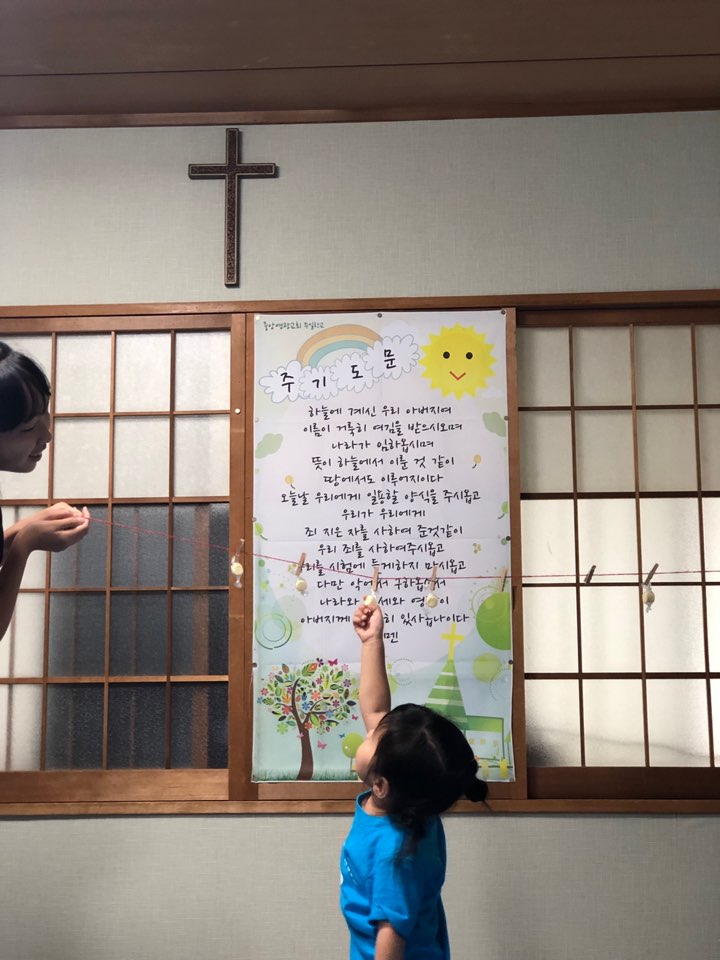 중앙영광교회 주일학교
주 기 도 문
하늘에 계신 우리 아버지여
이름이 거룩히 여김을 받으시오며
나라가 임하옵시며
뜻이 하늘에서 이룬 것 같이
땅에서도 이루어지이다
오늘날 우리에게 일용할 양식을 주시옵고
우리가 우리에게
죄 지은 자를 사하여 준것같이
우리 죄를 사하여주시옵고
시험에 들게하지 마시옵고
다만 악에서
나라와
아버지께 있사옵나이다